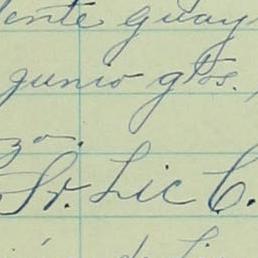 ente guay
junio gtos.,
zo.
Sr. Lic C.
de Li